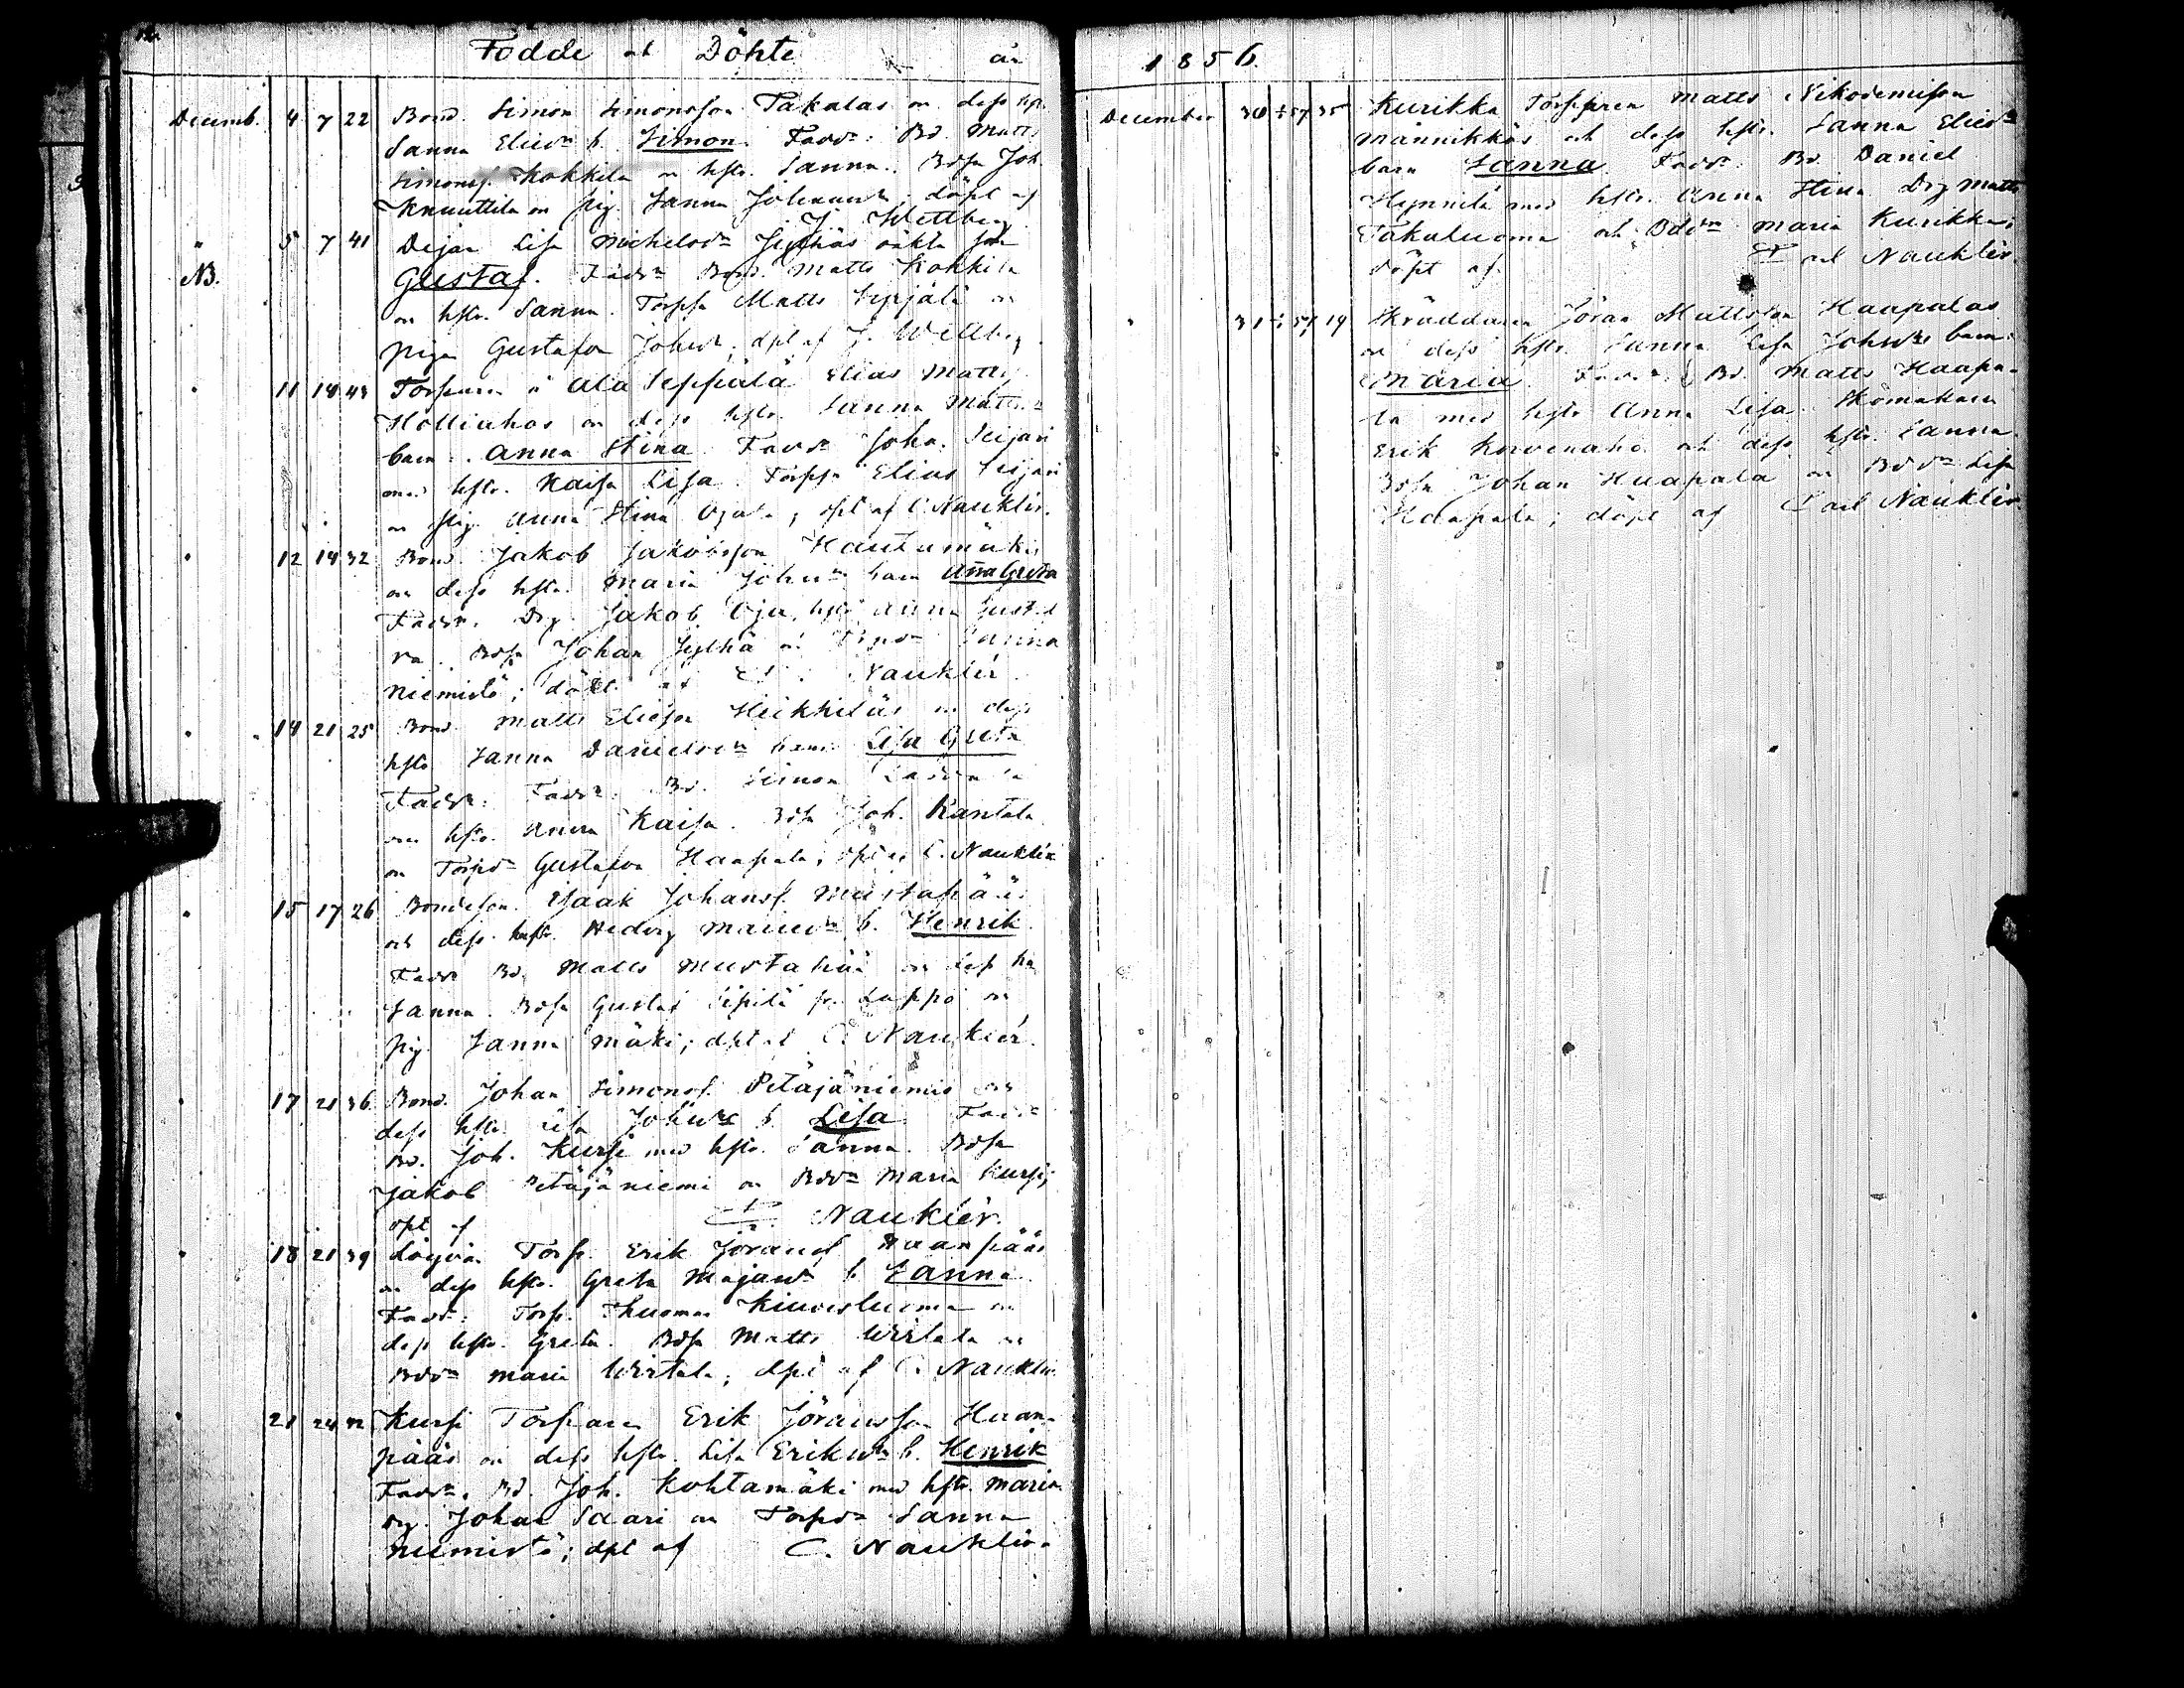 Födde och Döpte år
Decemb. 4 7 22 Bond. Simon Simonsson Takalas on dess hst.
Sanna Eliedr b. Simon. Faddr: Bd. Matts
Simonss. Kokkila on hstr. Sanna. Bdsn Joh.
Knuuttila on pig. Sanna Johansdr; döpt af
J. Wettberg
" 5 7 41 Dejan Lisa Michelsdr Jylhäs oäkta son
NB. Gustaf. Faddr Bond. Matts Kokkila
on hstr. Sanna. Torpsn Matts
pigan Gustafva Johsdr; dpt af J. Wettberg
" 11 14 43 Torparen å Ala Seppälä Elias Matts
Holliahos on dess hstr. Sanna Mattsdr
barn: Anna Stina Faddr Joha. Seijari
med hstr. Kaisa Lisa. Torpsn Elias Seijari
on pig. Anna Stina Ojala; dpt af C. Nauklér.
" 12 14 32 Bond. Jakob Jakobsson Hautamäkis
on dess hstr. Maria Johsdr barn Anna Greta
Faddr. Drg. Jakob Oja, hstr Anna Gustaf
va. Bdsn Johan Jylhä on Sanna
Niemistö; döpt af C. Nauklér
" 14 21 25 Bond. Matts Eliesson Heikkiläs on dess
hstr Sanna Danielsdr barn Lisa Greta
Faddr: Faddr: Bd. Simon
on hstr. Anna Kaisa. Bdsn Joh. Rantala
on Torpdr Gustafva Haapala; dpt af C. Nauklér
" 15 17 26 Bondeson. Isaak Johanss. Mustapääs
och dess hustr. Hedvig Mariedr b. Henrik.
Faddr Bd. Matts Mustapää on dess
Sanna. Bdsn Gustaf fr. Lappo on
pig. Sanna Mäki; dpt af C. Nauklér.
" 17 21 36 Bond. Johan Simonss. Petäjäniemis on
dess hstr. Lisa Johsdr b. Lisa Faddr
Bd. Joh. Kursi med hstr. Sanna. Bdsn
Jakob Petäjäniemi on Bddr Maria Kursi;
dpt af C. Nauklér.
" 18 21 39 Torp. Erik Jöranss. Haanpääs
on dess hstr. Greta Majasdr b. Sanna
Faddr: Torp. Thuomas Kiuvesluoma on
dess hstr. Greta. Bdsn Matts Wirtala on
Bddr Maria Wirtala; dpt af C. Nauklér
" 21 24 32 Kursi Torparen Erik Jöransson Haan-
pääs on dess hstr. Lisa Eriksdr b. Henrik
Faddr. Bd. Joh. Kohtamäki med hstr. Maria.
drg. Johan Saari on Torpdr Sanna
Niemistö; dpt af C. Nauklér.
1856.
December 30 57 35 Kurikka Torparen Matts Nikodemisson
Männikkös och dess hstr. Sanna Eliedr
barn Sanna. Faddr: Bd. Daniel
Hynnilä med hstr. Anna Stina Drg Matts
Takaluoma och Bddr Maria Kurikka;
döpt af Carl Nauklér.
" 31 57 19 Skräddaren Jöran Mattsson Haapalas
on dess hstr. Sanna Lisa Johsdr barn
Maria. Faddr: Bd. Matts Haapa-
la med hstr Anna Lisa. Skomakaren
Erik Korvenaho och dess hstr. Sanna.
Bdsn Johan Haapala on Bddr Lisa
Haapala; döpt af Carl Nauklér.